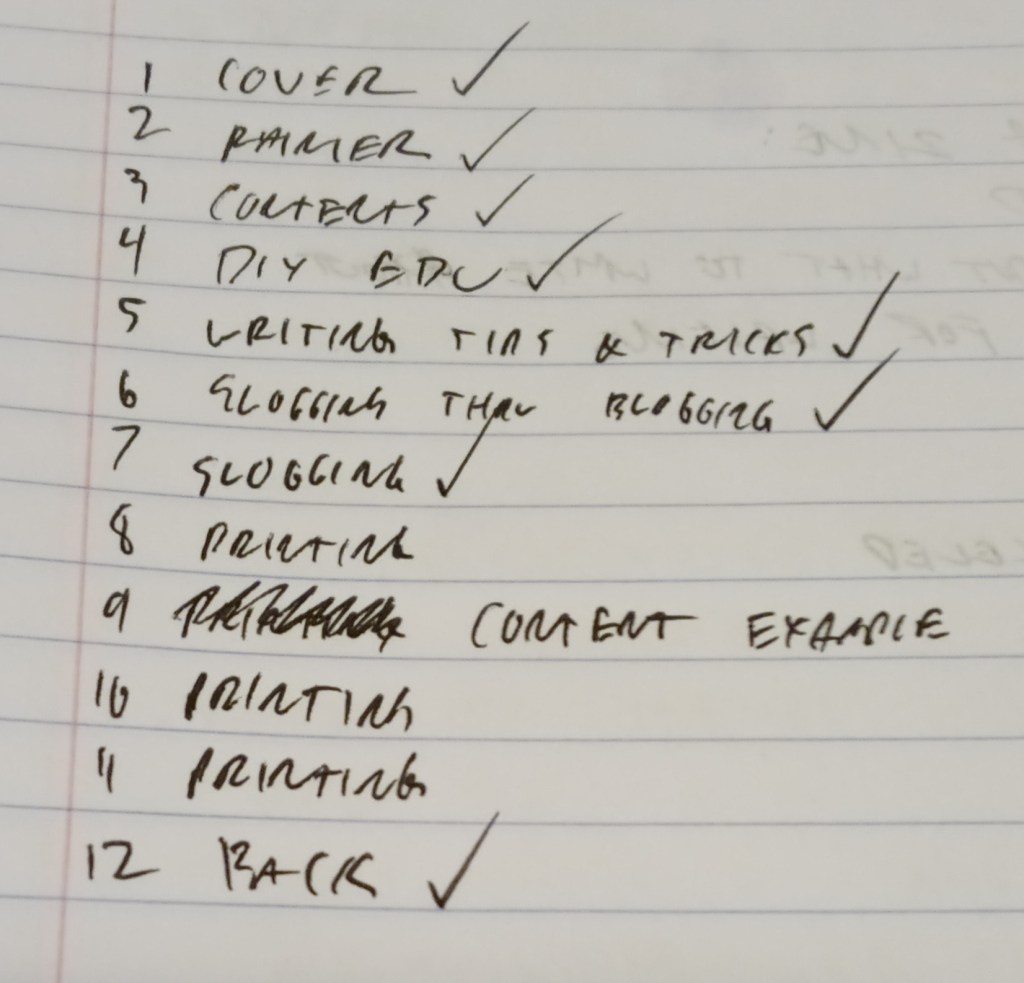 1 COVER ✓
2 PRIMER ✓
3 CONTENTS ✓
4 DIY EDU ✓
5 WRITING TIPS & TRICKS ✓
6 SLOGGING THRU BLOGGING ✓
7 SLOGGING ✓
8 PRINTING
9 CONTENT EXAMPLE
10 PRINTING
11 PRINTING
12 BACK ✓